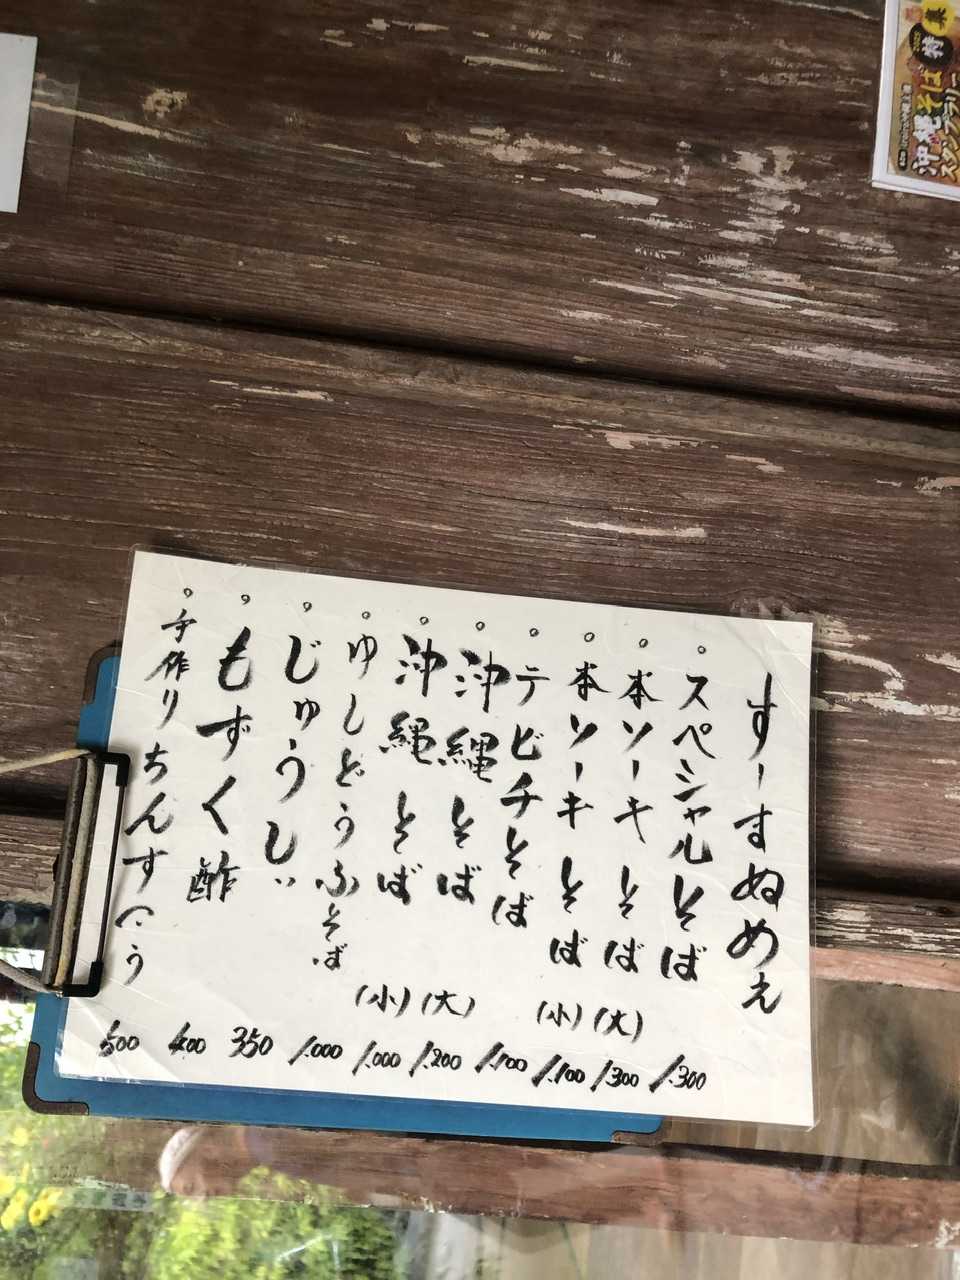 すーすぬめぇ
。スペシャルそば 1.300
。本ソーキそば (大) 1.300
。本ソーキそば (小) 1.100
。テビチそば 1.100
。沖縄そば (大) 1.200
。沖縄そば (小) 1.000
。ゆしどうふそば 1.000
。じゅうしぃ 350
。もずく酢 400
。手作りちんすこう 500
2025
特集
沖縄そば
スタンプラリー